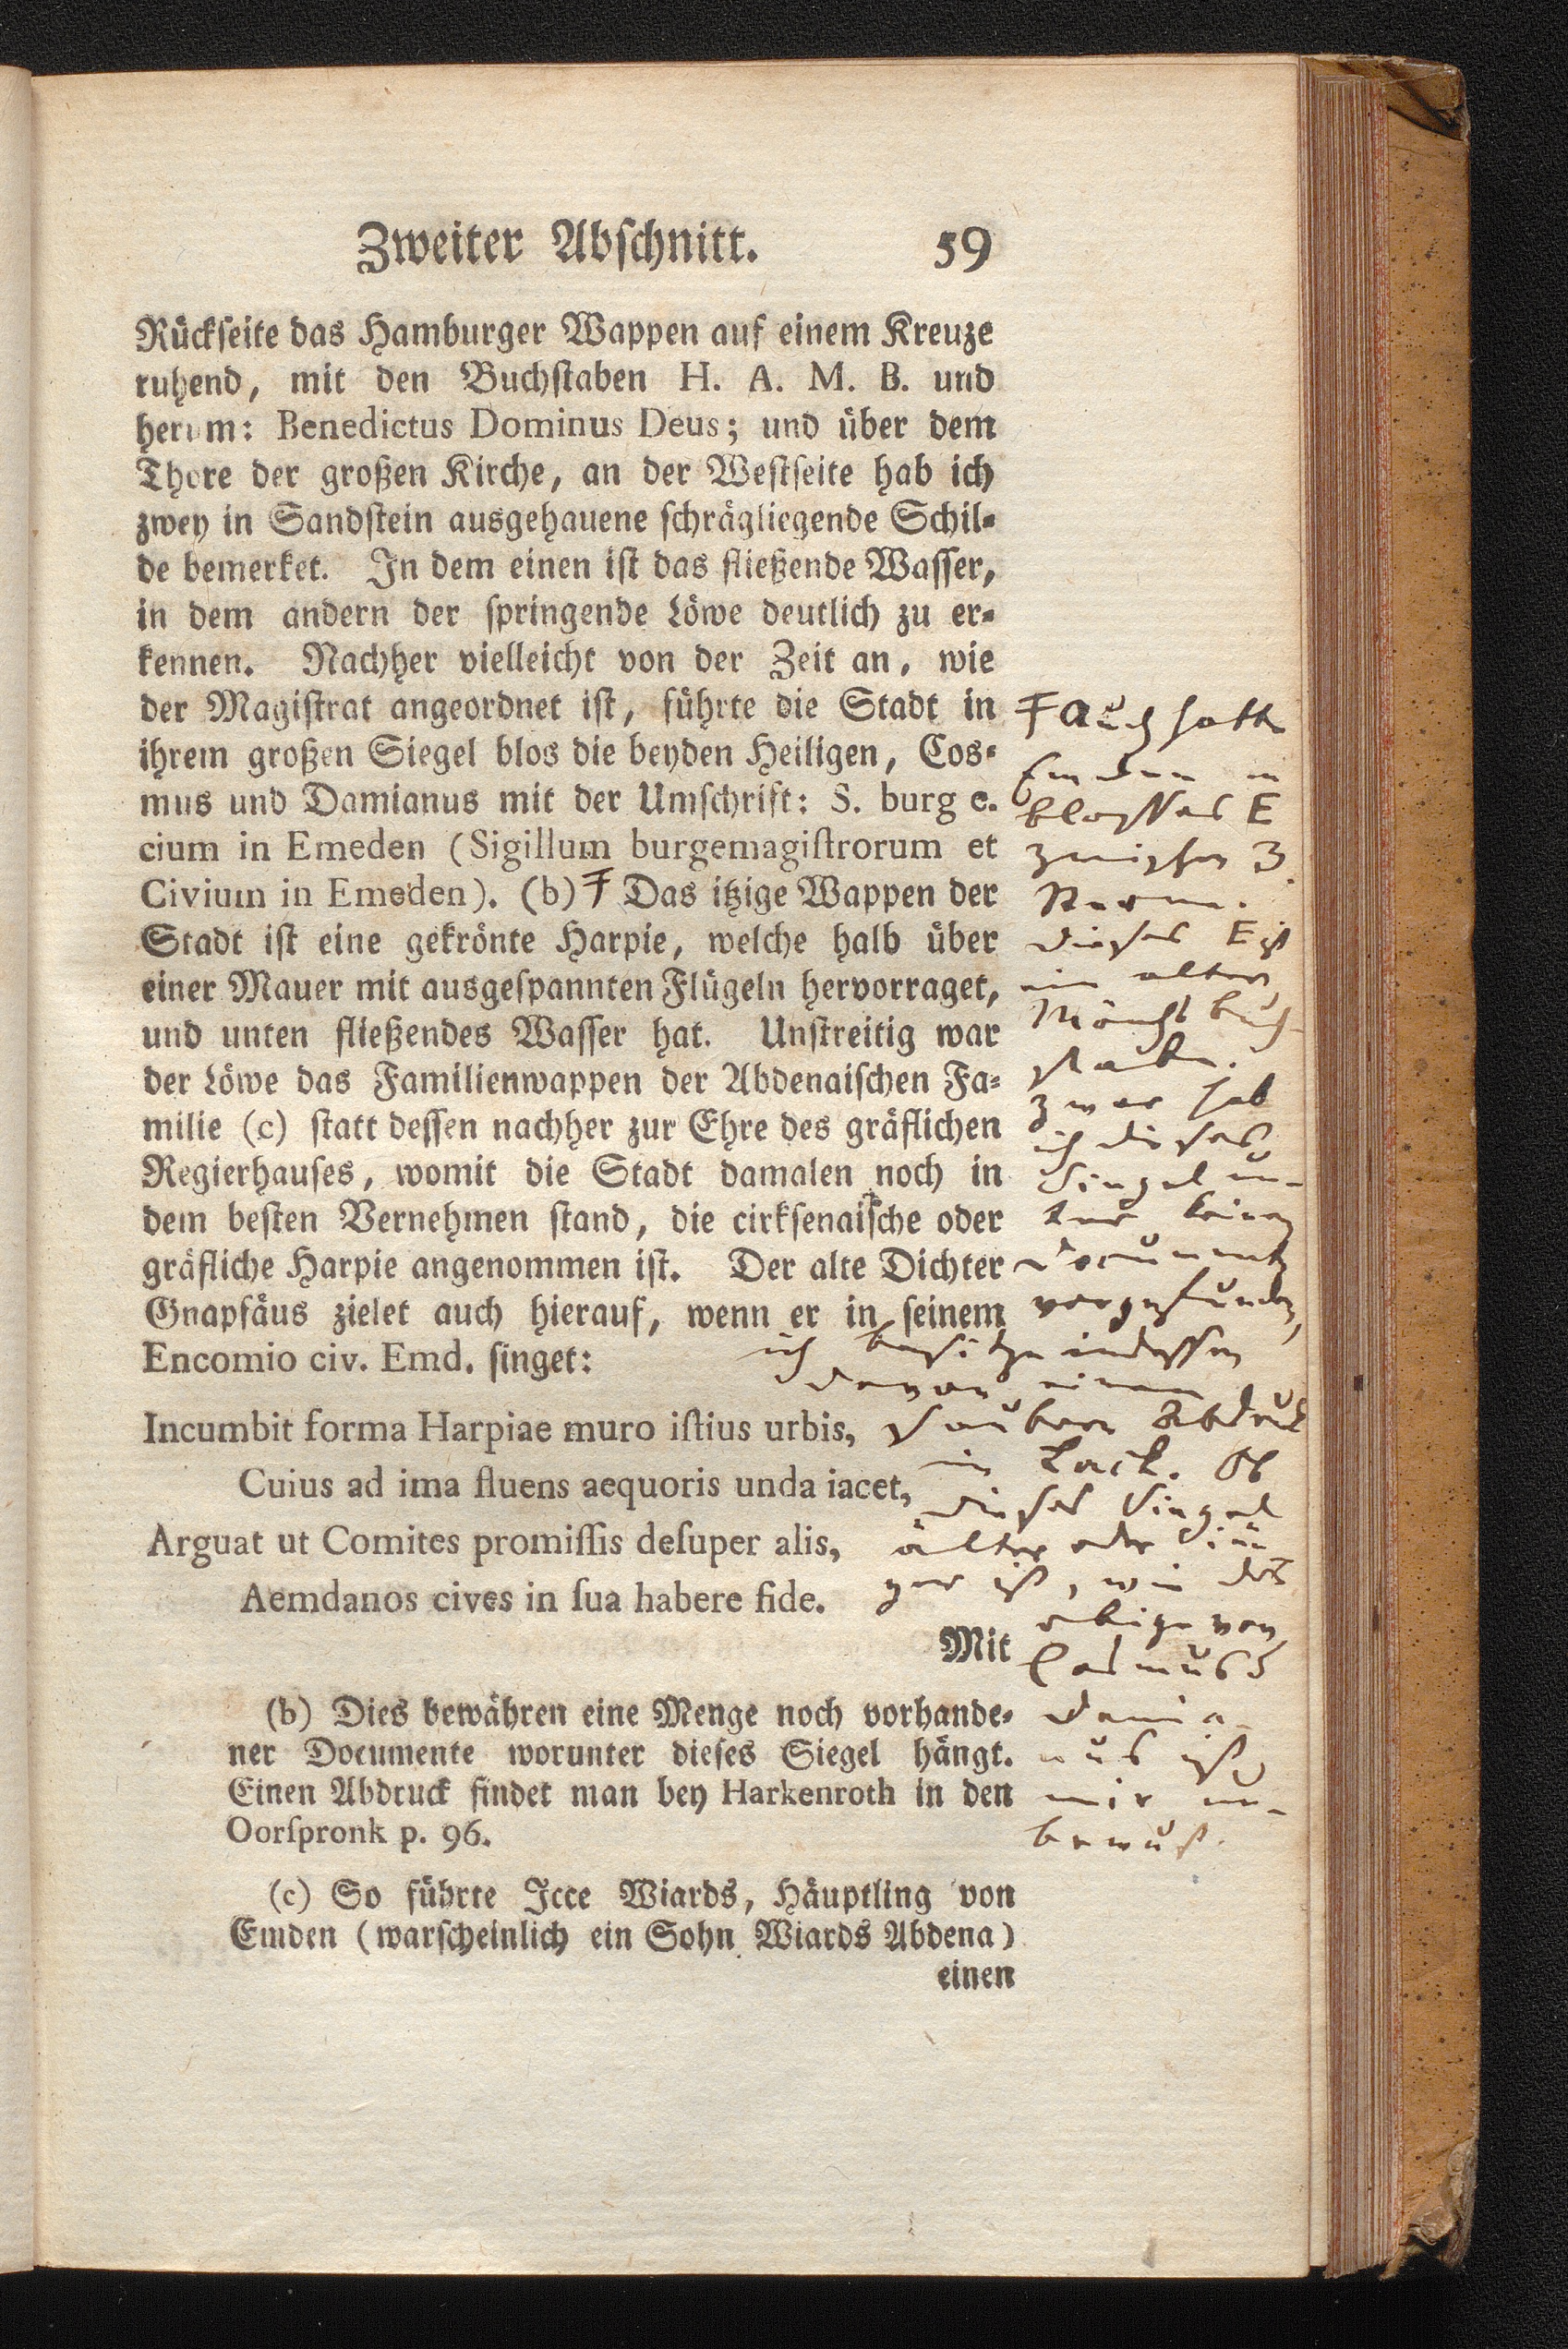 Zweiter Abſchnitt. 59
Rückſeite das Hamburger Wappen auf einem Kreuze
ruhend, mit den Buchſtaben H. A. M. B. und
herum: Benedictus Dominus Deus; und über dem
Thore der großen Kirche, an der Weſtſeite hab ich
zwey in Sandſtein ausgehauene ſchrägliegende Schil-
de bemerket. In dem einen iſt das fließende Waſſer,
in dem andern der ſpringende Löwe deutlich zu er-
kennen. Nachher vielleicht von der Zeit an, wie
der Magiſtrat angeordnet iſt, führte die Stadt in
ihrem großen Siegel blos die beyden Heiligen, Cos-
mus und Damianus mit der Umſchrift: S. burg e.
cium in Emeden (Sigillum burgemagiſtrorum et
Civium in Emeden). (b) Ŧ Das itzige Wappen der
Stadt iſt eine gekrönte Harpie, welche halb über
einer Mauer mit ausgeſpannten Flügeln hervorraget,
und unten fließendes Waſſer hat. Unſtreitig war
der Löwe das Familienwappen der Abdenaiſchen Fa-
milie (c) ſtatt deſſen nachher zur Ehre des gräflichen
Regierhauſes, womit die Stadt damalen noch in
dem beſten Vernehmen ſtand, die cirkſenaiſche oder
gräfliche Harpie angenommen iſt. Der alte Dichter
Gnapfäus zielet auch hierauf, wenn er in ſeinem
Encomio civ. Emd. ſinget:
Incumbit forma Harpiae muro iſtius urbis,
Cuius ad ima fluens aequoris unda iacet,
Arguat ut Comites promiſſis deſuper alis,
Aemdanos cives in ſua habere fide.
Mit
(b) Dies bewähren eine Menge noch vorhande-
ner Documente worunter dieſes Siegel hängt.
Einen Abdruck findet man bey Harkenroth in den
Oorſpronk p. 96.
(c) So führte Icce Wiards, Häuptling von
Emden (warſcheinlich ein Sohn Wiards Abdena)
einen
Ŧ auch hatte
Emden ein
bloſſes E
zwiſchen 3
Sterne.
dieſes E iſt
ein alter
Mönchs buch-
ſtabe.
Zwar hab
ich dieſes
Siegel un-
ter keinen
Documente
vorgefunden,
ich beſitze indeſſen
davon einen
ſaubern Abdruck
in Lack. Ob
dieſes Siegel
älter oder jün
ger iſt, wie das
obige von
Cosmus &
Damia-
nus iſt
mir un-
bewuſt.